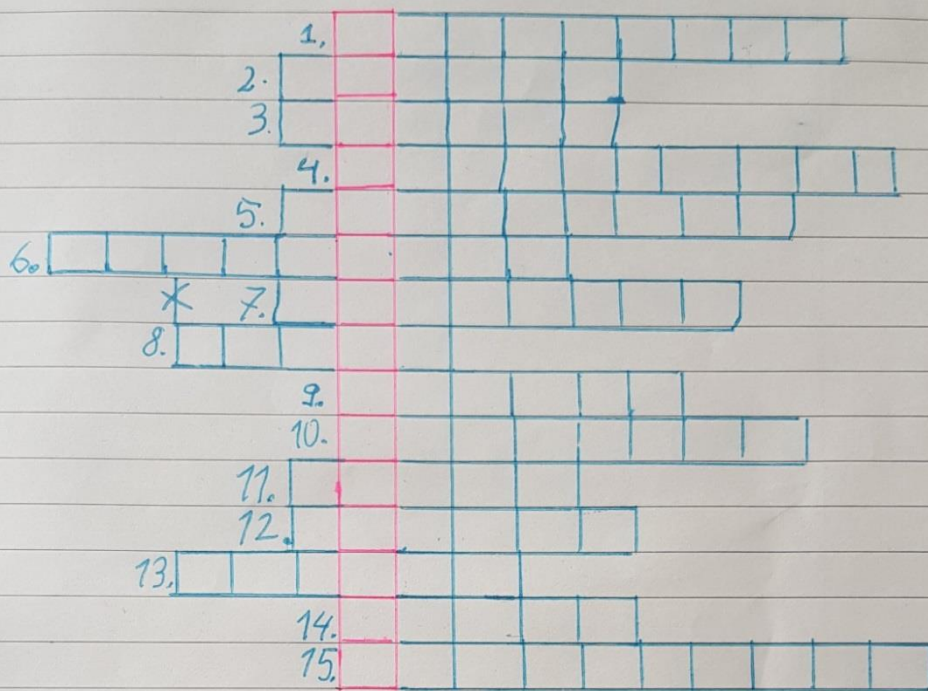 1.
2.
3.
4.
5.
6.
* 7.
8.
9.
10.
11.
12.
13.
14.
15.